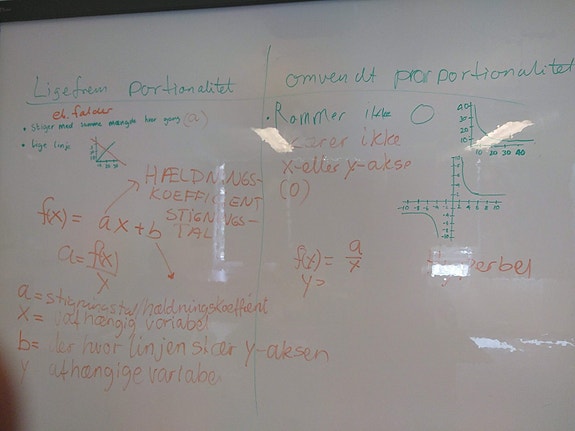 Ligefrem Portionalitet
el. falder
• Stiger med samme mængde hver gang (a)
• lige linje
10 20 30
HÆLDNINGS-
KOEFFICIENT
STIGNINGS-
TAL
f(x) = ax+b
a = f(x)
x
a = stigningstal/hældningskoefficient
x = uafhængig variabel
b = der hvor linjen skær y-aksen
y afhængige variabe
omvendt proportionalitet
• Rammer ikke 0
skærer ikke
x-eller y-akse
(0)
40
30
20
10
10 20 30 40
-10 -8 -6 -4 -2 2 4 6 8 10
f(x) = a
x
y =
Hyperbel